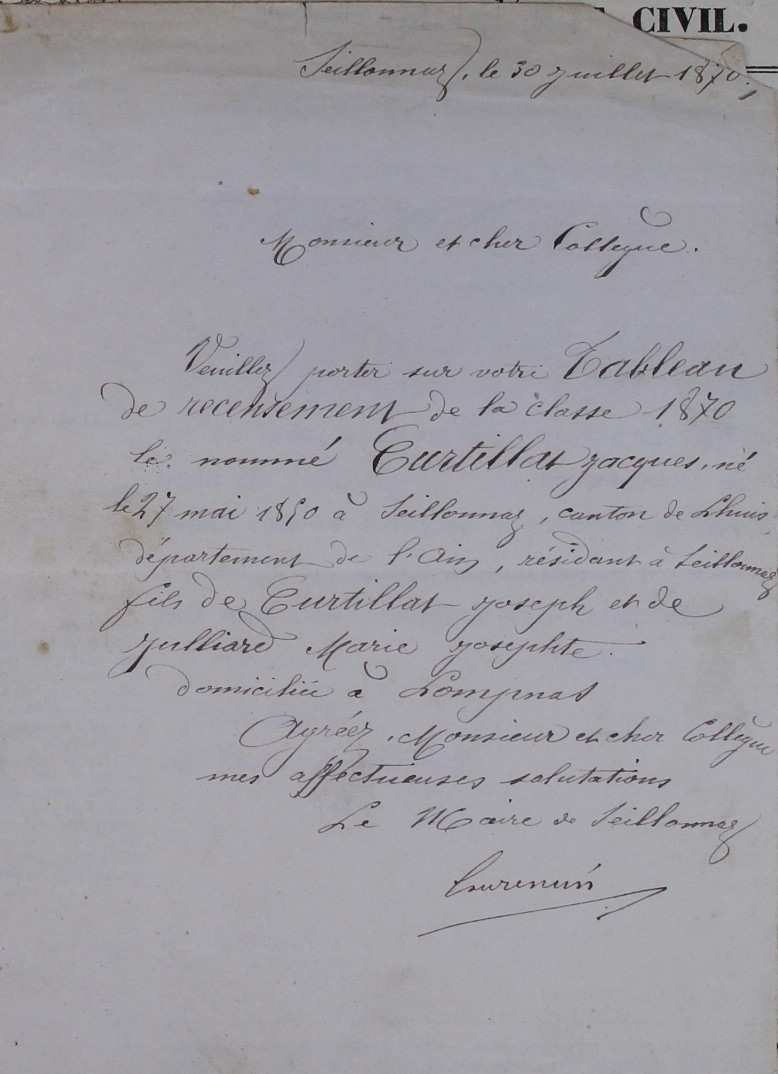 CIVIL.
Seillonnaz, le 30 juillet 1870.
Monsieur et cher Collegue.
Veuillez porter sur votre Tableau
de recensement de la classe 1870
le nommé Curtillat jacques, né
le 27 mai 1850 à Seillonnaz, canton de Lhuis,
département de l'Ain, résidant à Seillonnaz
fils de Curtillat joseph et de
julliard Marie josephte.
domiciliée à Lompnas
Agréez, Monsieur et cher Collègue
mes affectueuses salutations
Le Maire de Seillonnaz